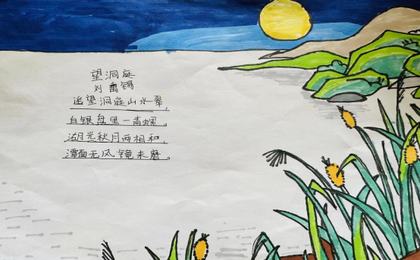 望洞庭
刘禹锡
遥望洞庭山水翠，
白银盘里一青螺。
湖光秋月两相和，
潭面无风镜未磨。